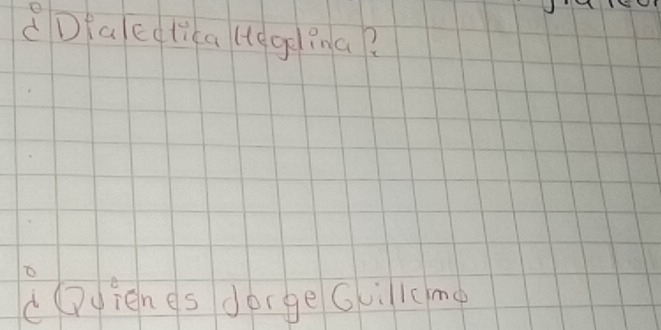 ¿Dialectica Hegelina?
¿Quien es Jorge Guillemo